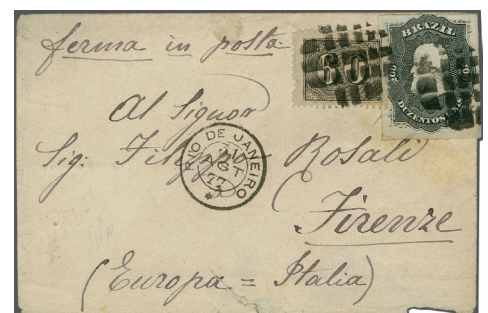 ferma in posta
60
BRAZIL
200
DUZENTOS
Al Signor
Sig: Filippo Rosali
RIO DE JANEIRO
OCT
77
Firenze
(Europa = Italia)